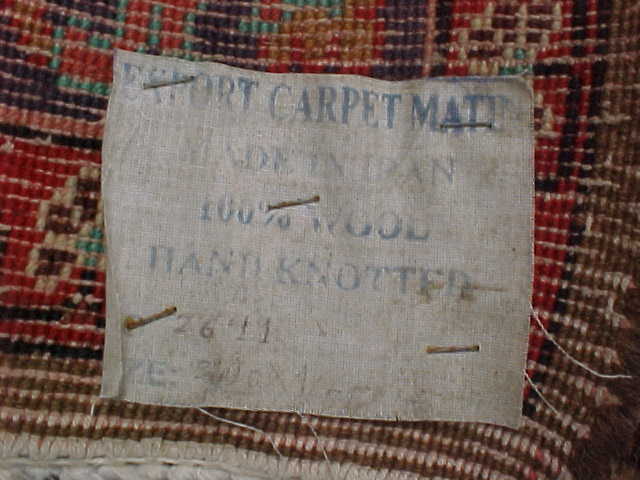 EXPORT CARPET
MADE IN IRAN
100% WOOL
HAND KNOTTED
2611